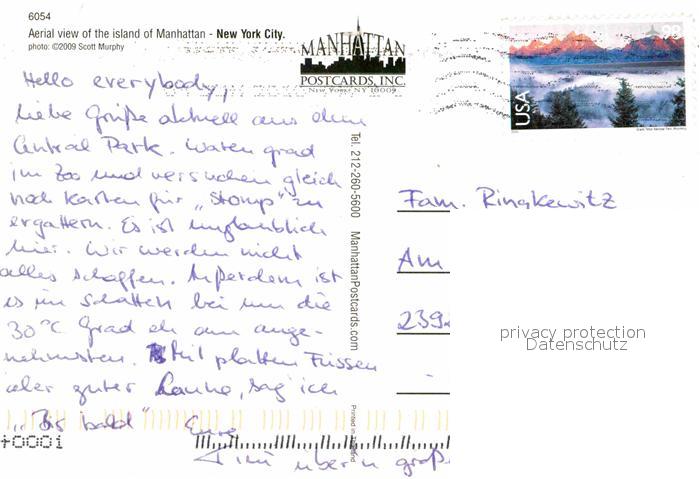 6054
Aerial view of the island of Manhattan - New York City.
photo: ©2009 Scott Murphy
MANHATTAN
POSTCARDS, INC.
New York NY 10009
USA
98
Hello everybody,
liebe Grüße aktuell aus dem
Central Park. Waren grad
im Zoo und versuchen gleich
noch Karten für „Stomp" zu
ergattern. Es ist unglaublich
hier. Wir werden nicht
alles schaffen. Außerdem ist
es im Schatten bei um die
30°C Grad eh am ange-
nehmsten. Mit platten Füssen
aber guter Laune, sag ich
„Bis bald" Eure
Tel. 212-260-5600 ManhattanPostcards.com
Printed in Thailand
Fam. Ringkewitz
Am
239
privacy protection
Datenschutz
+0001